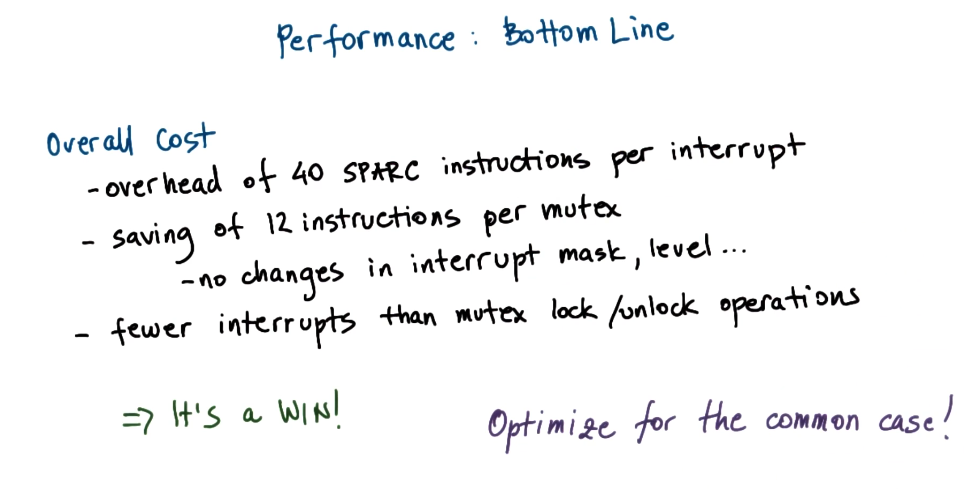 Performance: Bottom Line
Overall Cost
- overhead of 40 SPARC instructions per interrupt
- saving of 12 instructions per mutex
- no changes in interrupt mask, level...
- fewer interrupts than mutex lock/unlock operations
=> It's a WIN!
Optimize for the common case!